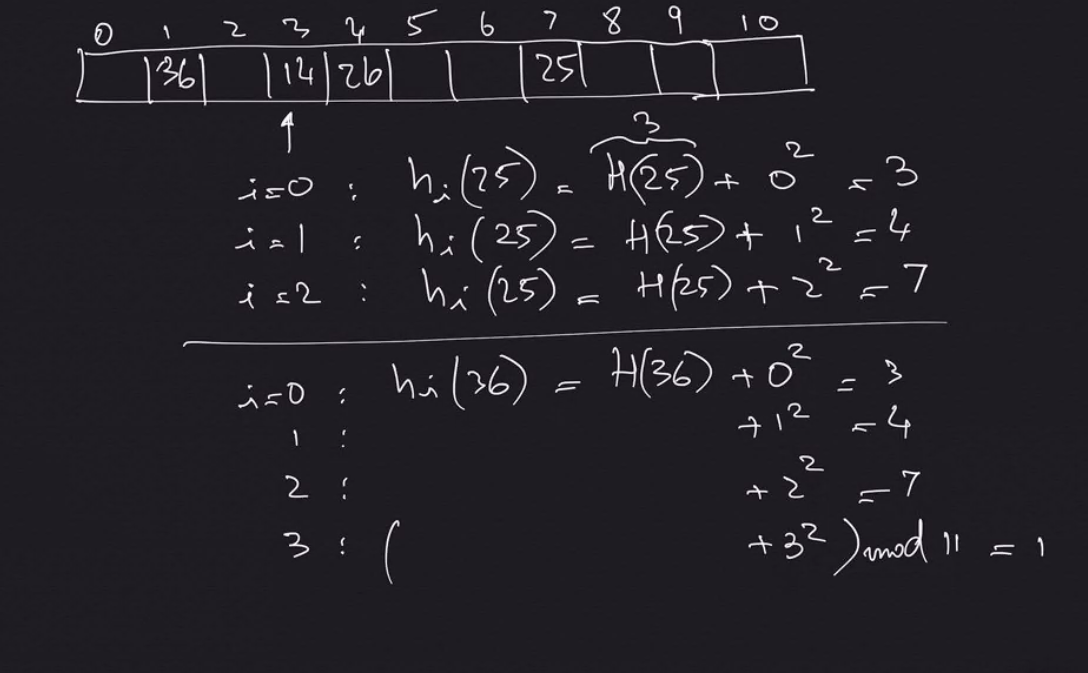 0 1 2 3 4 5 6 7 8 9 10
36 14 26 25
3
i=0 : hi(25) = H(25) + 0² = 3
i=1 : hi(25) = H(25) + 1² = 4
i=2 : hi(25) = H(25) + 2² = 7
i=0 : hi(36) = H(36) + 0² = 3
1 : + 1² = 4
2 : + 2² = 7
3 : ( + 3² ) mod 11 = 1